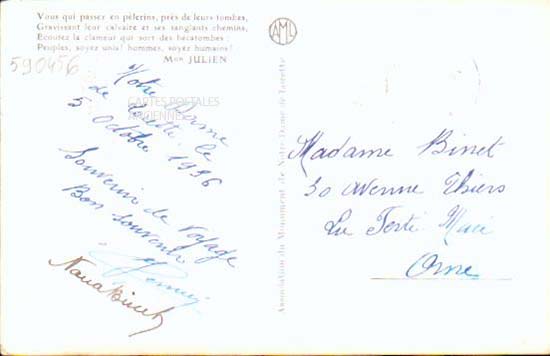 Vous qui passez en pèlerins, près de leurs tombes,
Gravissant leur calvaire et ses sanglants chemins,
Écoutez la clameur qui sort des hécatombes :
Peuples, soyez unis! hommes, soyez humains!
Mgr JULIEN
AML
590456
CARTES POSTALES
ANCIENNES
Notre Dame
de Lorette le
5 Octobre 1936
Souvenir de voyage
Bon souvenir
Binet
Association du Monument de Notre-Dame de Lorette
Madame Binet
30 avenue Thiers
La Ferté Macé
Orne